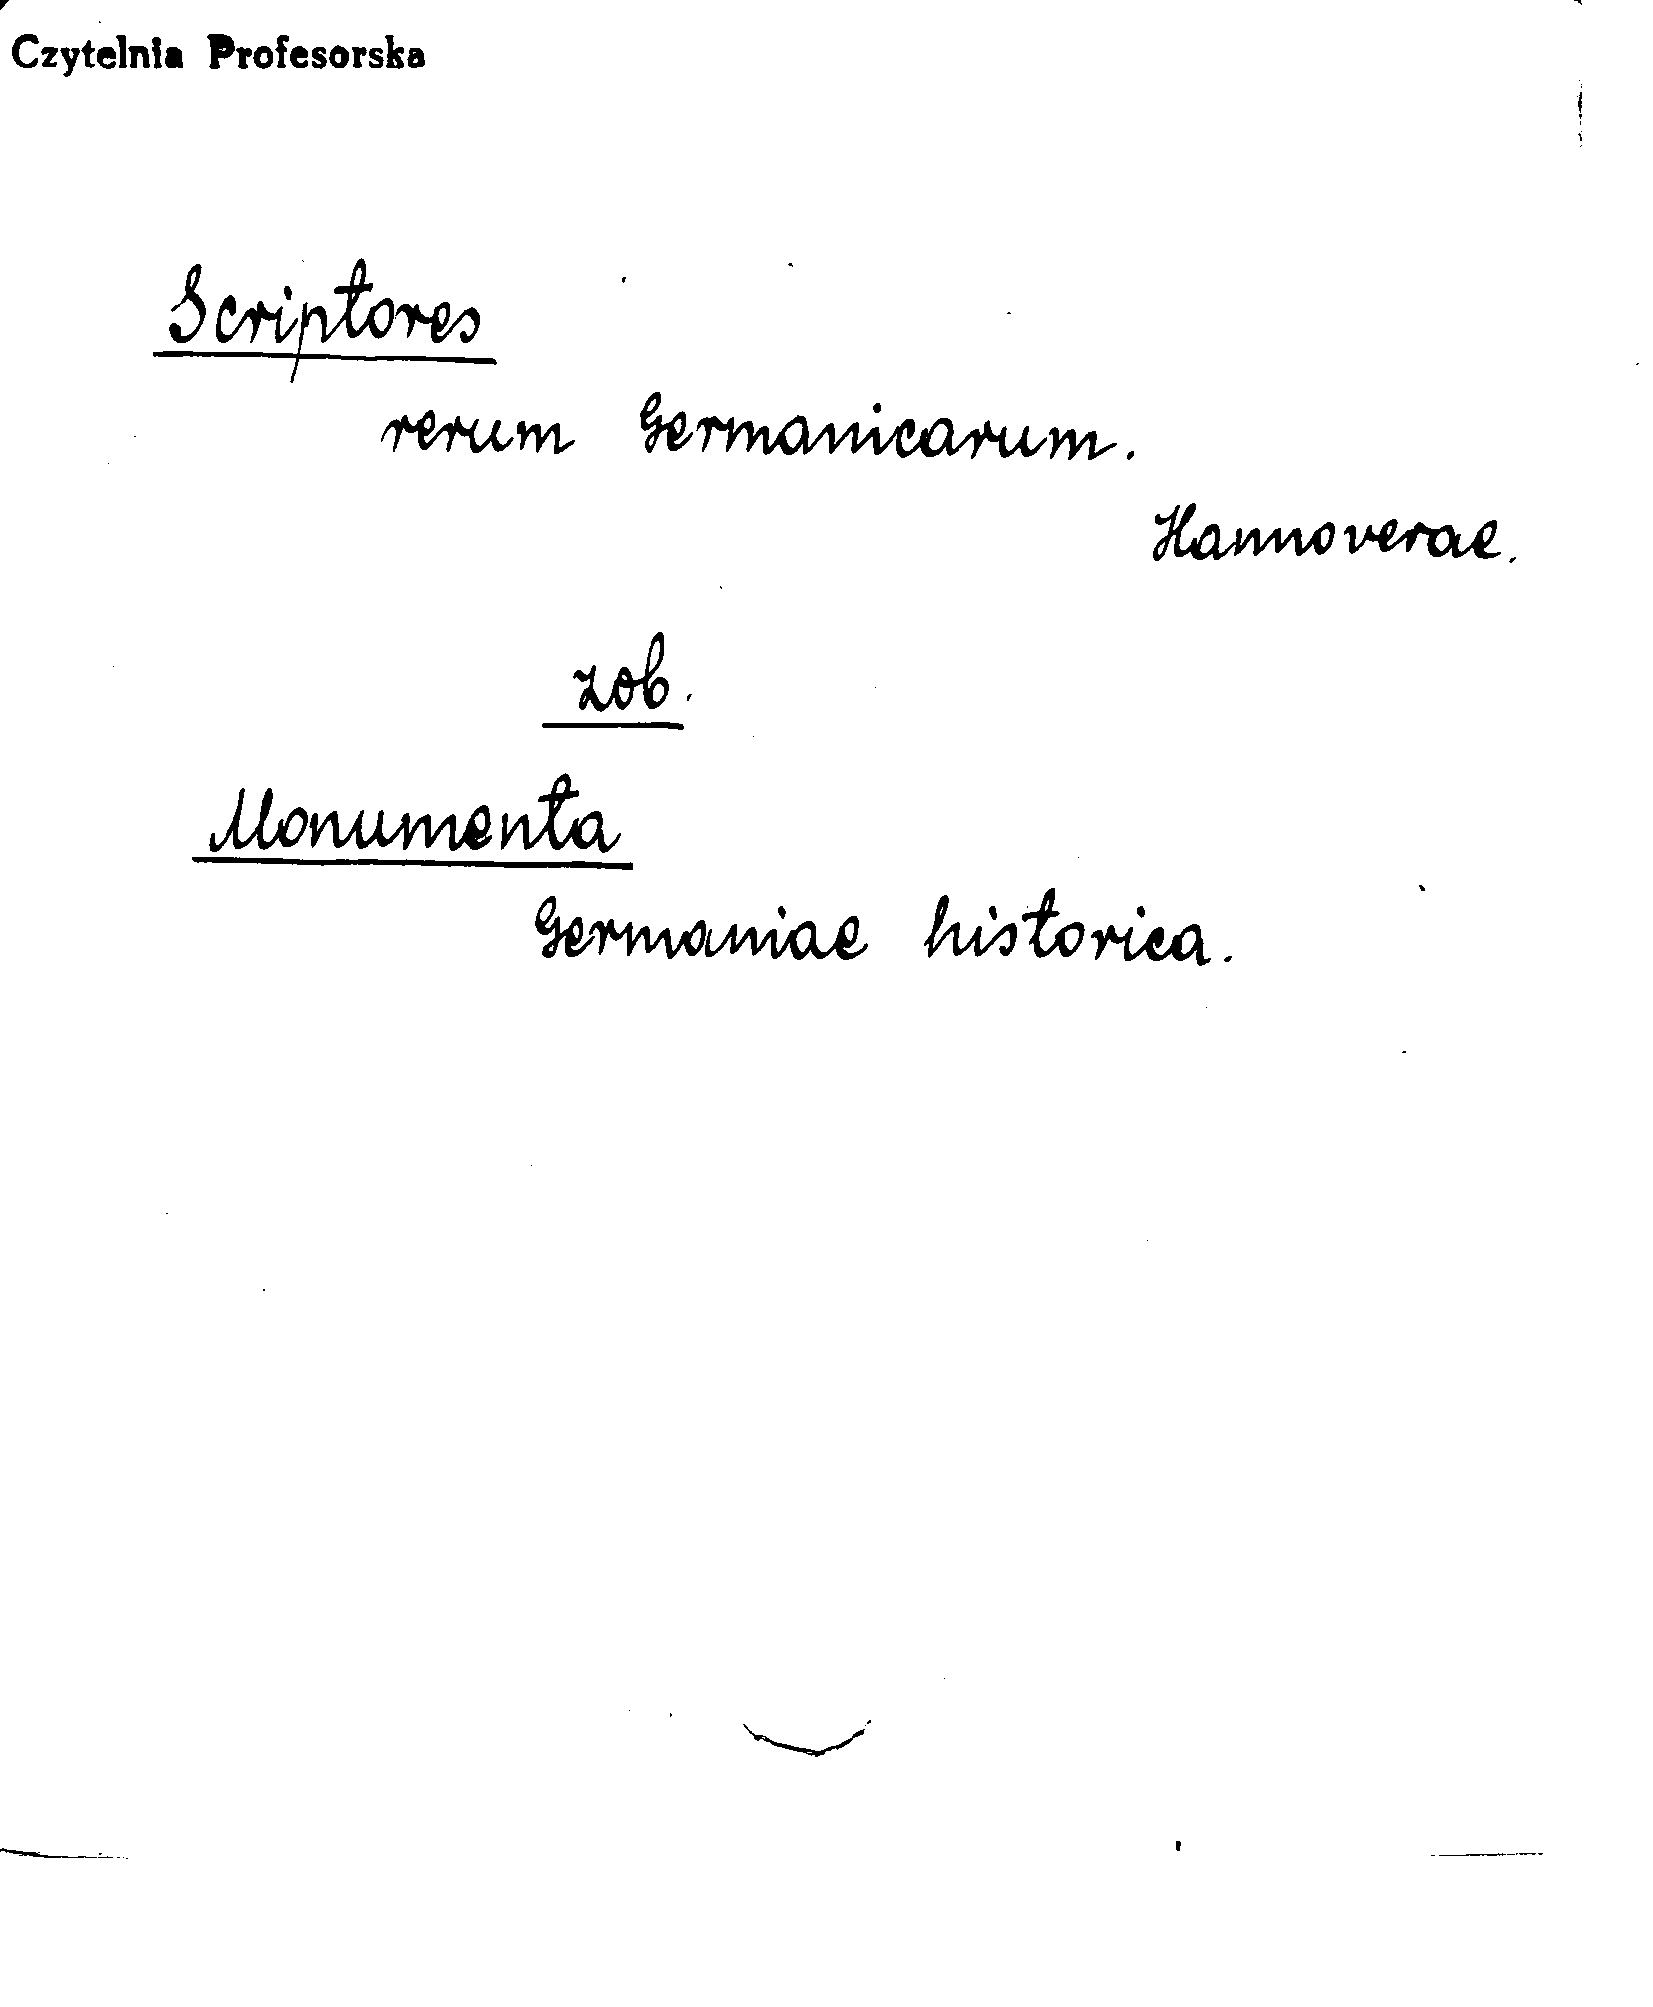 Czytelnia Profesorska
Scriptores
rerum Germanicarum.
Hannoverae.
zob.
Monumenta
Germaniae historica.